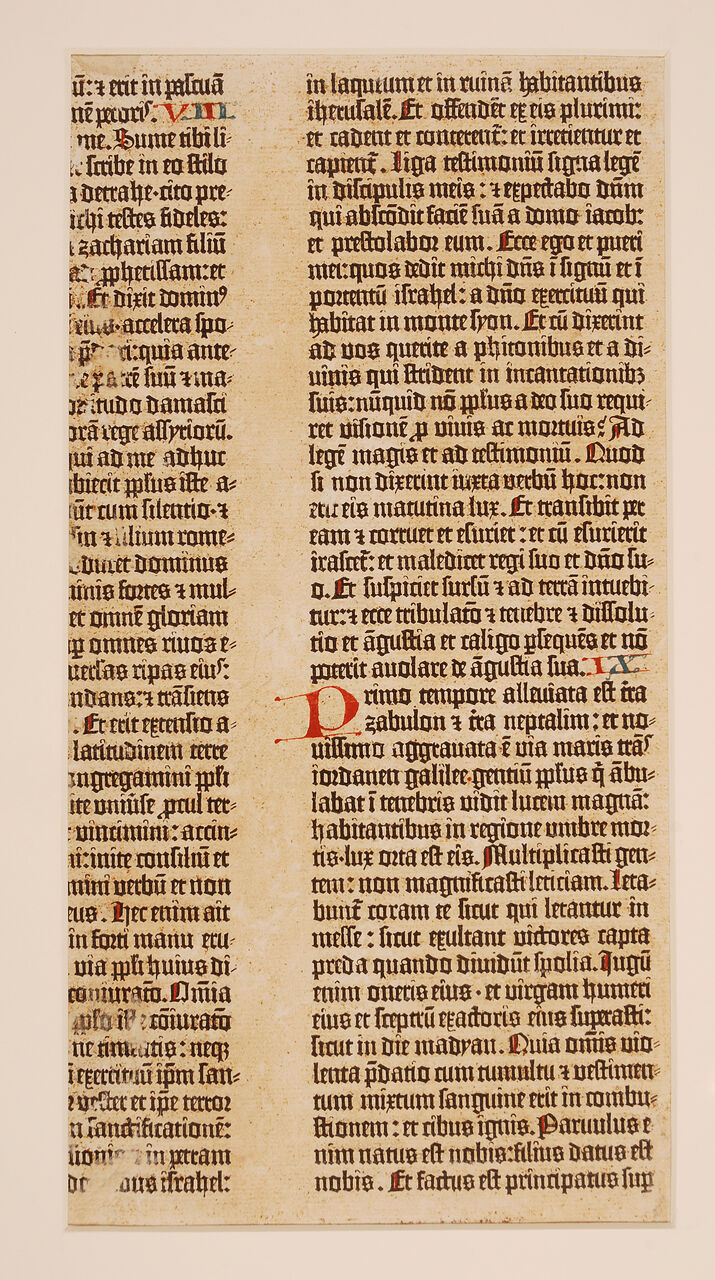 ū: ⁊ erit in pascuā
nē pecoris. VIII
me. Sume tibi li⸗
scribe in eo stilo
a detrahe·cito pre⸗
ichi testes fideles:
zachariam filiū
ꝓphetissam: et
Et dixit dominꝰ
accelera spo⸗
quia ante⸗
suū ⁊ ma⸗
itudo damasci
orā rege assyriorū.
ui ad me adhuc
biecit ppl̄us iste a⸗
ūt cum silentio·⁊
in ⁊ filium rome⸗
ducet dominus
uinis fortes ⁊ mul⸗
et omnē gloriam
ꝑ omnes riuos e⸗
uersas ripas eiuˢ:
ndans: ⁊ trāsiens
. Et erit extensio a⸗
latitudinem terre
ongregamini ppl̄i
ite uniuse ꝓcul ter⸗
: vincimini: accin⸗
i: inite consiliū et
mini verbū et non
eus. Hec enim ait
in forti manu eru⸗
via ppl̄i huius di⸗
coniurato̅. Om̄ia
coīurato̅
ne timeatis: neqꝫ
exercituū ip̄m san⸗
vester et ip̄e terror
n sanctificationē:
in petram
us israhel:
in laqueum et in ruinā habitantibus
iherusalē. Et offendēt ex eis plurimi:
et cadent et conterent̄: et irretientur et
capient̄. Liga testimoniū signa legē
in discipulis meis: ⁊ expectabo dn̄m
qui abscōdit faciē suā a domo iacob:
et prestolabor eum. Ecce ego et pueri
mei: quos dedit michi dn̄s ī signū et ī
portentū israhel: a dn̄o exercituū qui
habitat in monte syon. Et cū dixerint
ad vos querite a phitonibus et a di⸗
uinis qui strident in incantationibꝫ
suis: nūquid nō ppl̄us a deo suo requi⸗
ret visionē ꝓ viuis ac mortuis? Ad
legē magis et ad testimoniū. Quod
si non dixerint iuxta verbū hoc: non
erit eis matutina lux. Et transibit per
eam ⁊ corruet et esuriet: et cū esurierit
irascet̄: et maledicet regi suo et dn̄o su⸗
o. Et suspiciet sursū ⁊ ad terrā intuebi⸗
tur: ⁊ ecce tribulato̅ ⁊ tenebre ⁊ dissolu⸗
tio et āgustia et caligo ꝑsequēs et nō
poterit auolare de āgustia sua. IX
Primo tempore alleuiata est t̄ra
zabulon ⁊ t̄ra neptalim: et no⸗
uissimo aggrauata ē via maris trāˢ
iordanen galilee gentiū ppl̄us q̄ ābu⸗
labat ī tenebris vidit lucem magnā:
habitantibus in regione umbre mor⸗
tis·lux orta est eis. Multiplicasti gen⸗
tem: non magnificasti leticiam. Leta⸗
bunt̄ coram te sicut qui letantur in
messe: sicut exultant victores capta
preda quando diuidūt spolia. Iugū
enim oneris eius·et virgam humeri
eius et sceptrū exactoris eius superasti:
sicut in die madyan. Quia om̄is vio⸗
lenta p̄datio cum tumultu ⁊ vestimen⸗
tum mixtum sanguine erit in combu⸗
stionem: et cibus ignis. Paruulus e
nim natus est nobis: filius datus est
nobis. Et factus est principatus suꝑ